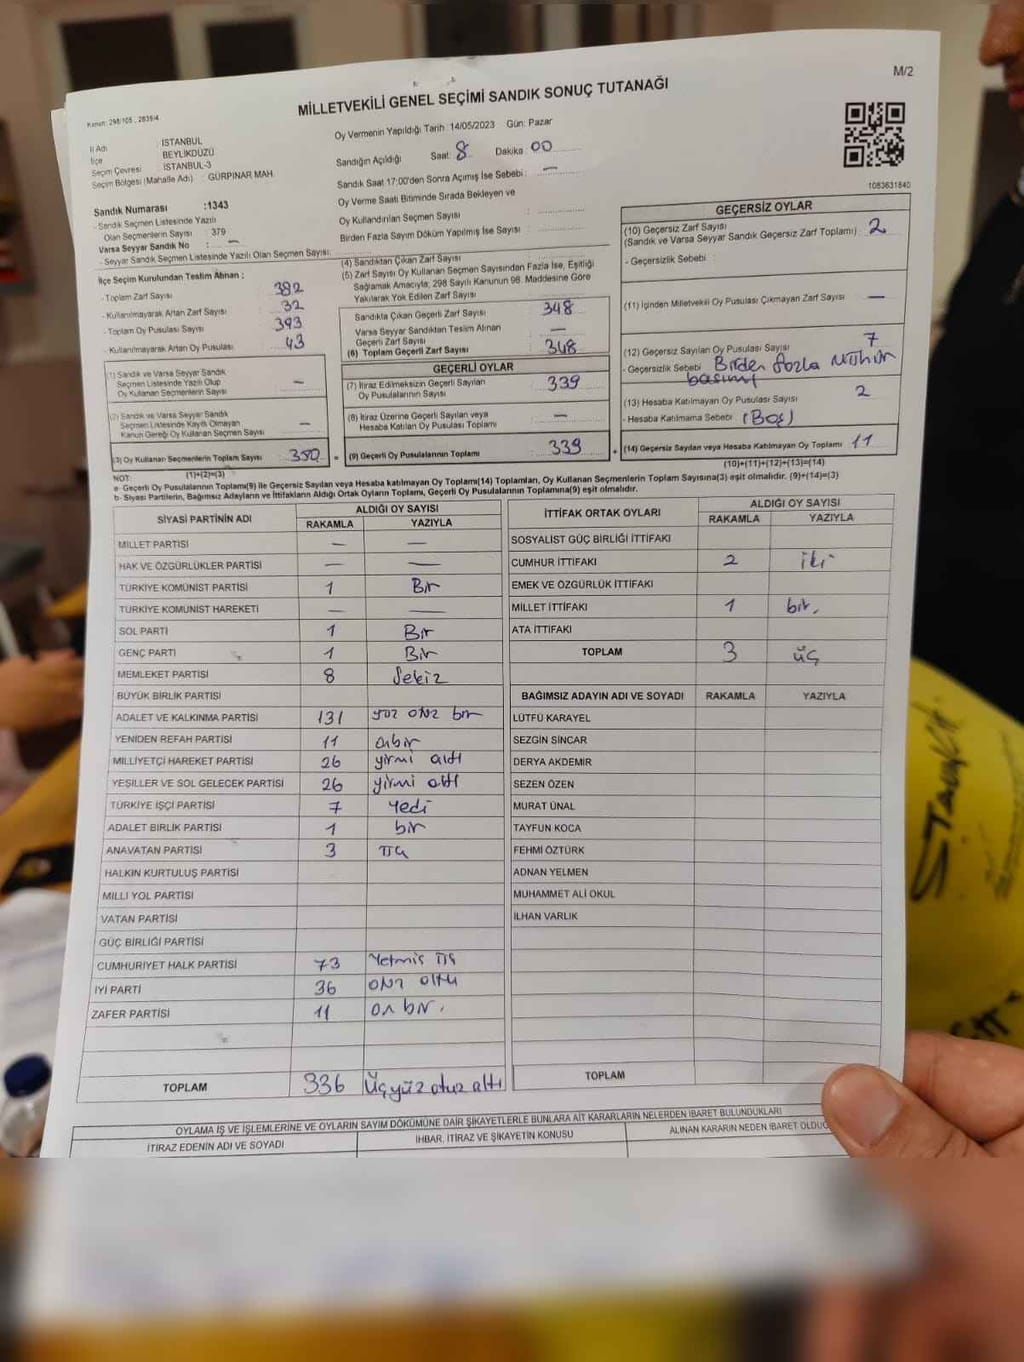 M/2
MİLLETVEKİLİ GENEL SEÇİMİ SANDIK SONUÇ TUTANAĞI
Kanun: 298/105 , 2839/4
İl Adı : İSTANBUL
İlçe : BEYLİKDÜZÜ
Seçim Çevresi : İSTANBUL-3
Seçim Bölgesi (Mahalle Adı) : GÜRPINAR MAH.
Sandık Numarası :1343
- Sandık Seçmen Listesinde Yazılı
Olan Seçmenlerin Sayısı : 379
Varsa Seyyar Sandık No : —
- Seyyar Sandık Seçmen Listesinde Yazılı Olan Seçmen Sayısı:
Oy Vermenin Yapıldığı Tarih :14/05/2023 Gün: Pazar
Sandığın Açıldığı Saat: 8 Dakika: 00
Sandık Saat 17:00'den Sonra Açılmış İse Sebebi : —
Oy Verme Saati Bitiminde Sırada Bekleyen ve
Oy Kullandırılan Seçmen Sayısı :
Birden Fazla Sayım Döküm Yapılmış İse Sayısı :
1083631840
İlçe Seçim Kurulundan Teslim Alınan :
- Toplam Zarf Sayısı 382
- Kullanılmayarak Artan Zarf Sayısı 32
- Toplam Oy Pusulası Sayısı 393
- Kullanılmayarak Artan Oy Pusulası 43
(1) Sandık ve Varsa Seyyar Sandık
Seçmen Listesinde Yazılı Olup
Oy Kullanan Seçmenlerin Sayısı —
(2) Sandık ve Varsa Seyyar Sandık
Seçmen Listesinde Kaydı Olmayan
Kanun Gereği Oy Kullanan Seçmen Sayısı —
(3) Oy Kullanan Seçmenlerin Toplam Sayısı 350
(1)+(2)=(3)
(4) Sandıktan Çıkan Zarf Sayısı :
(5) Zarf Sayısı Oy Kullanan Seçmen Sayısından Fazla İse, Eşitliği
Sağlamak Amacıyla; 298 Sayılı Kanunun 98. Maddesine Göre
Yakılarak Yok Edilen Zarf Sayısı :
Sandıkta Çıkan Geçerli Zarf Sayısı : 348
Varsa Seyyar Sandıktan Teslim Alınan
Geçerli Zarf Sayısı : —
(6) Toplam Geçerli Zarf Sayısı : 348
GEÇERLİ OYLAR
(7) İtiraz Edilmeksizin Geçerli Sayılan
Oy Pusulasının Sayısı 339
(8) İtiraz Üzerine Geçerli Sayılan veya
Hesaba Katılan Oy Pusulası Toplamı —
= (9) Geçerli Oy Pusulalarının Toplamı 339
GEÇERSİZ OYLAR
(10) Geçersiz Zarf Sayısı
(Sandık ve Varsa Seyyar Sandık Geçersiz Zarf Toplamı) : 2
- Geçersizlik Sebebi :
(11) İçinden Milletvekili Oy Pusulası Çıkmayan Zarf Sayısı : —
(12) Geçersiz Sayılan Oy Pusulası Sayısı : 7
- Geçersizlik Sebebi : Birden fazla mühür
basımı
(13) Hesaba Katılmayan Oy Pusulası Sayısı : 2
- Hesaba Katılmama Sebebi : (Boş)
+ (14) Geçersiz Sayılan veya Hesaba Katılmayan Oy Toplamı 11
(10)+(11)+(12)+(13)=(14)
NOT:
a- Geçerli Oy Pusulalarının Toplamı(9) ile Geçersiz Sayılan veya Hesaba katılmayan Oy Toplamı(14) Toplamları, Oy Kullanan Seçmenlerin Toplam Sayısına(3) eşit olmalıdır. (9)+(14)=(3)
b- Siyasi Partilerin, Bağımsız Adayların ve İttifakların Aldığı Ortak Oyların Toplamı, Geçerli Oy Pusulalarının Toplamına(9) eşit olmalıdır.
SİYASİ PARTİNİN ADI ALDIĞI OY SAYISI
RAKAMLA YAZIYLA
MİLLET PARTİSİ — —
HAK VE ÖZGÜRLÜKLER PARTİSİ — —
TÜRKİYE KOMÜNİST PARTİSİ 1 Bir
TÜRKİYE KOMÜNİST HAREKETİ — —
SOL PARTİ 1 Bir
GENÇ PARTİ 1 Bir
MEMLEKET PARTİSİ 8 Sekiz
BÜYÜK BİRLİK PARTİSİ
ADALET VE KALKINMA PARTİSİ 131 yüz otuz bir
YENİDEN REFAH PARTİSİ 11 onbir
MİLLİYETÇİ HAREKET PARTİSİ 26 yirmi altı
YEŞİLLER VE SOL GELECEK PARTİSİ 26 yirmi altı
TÜRKİYE İŞÇİ PARTİSİ 7 Yedi
ADALET BİRLİK PARTİSİ 1 bir
ANAVATAN PARTİSİ 3 üç
HALKIN KURTULUŞ PARTİSİ
MİLLİ YOL PARTİSİ
VATAN PARTİSİ
GÜÇ BİRLİĞİ PARTİSİ
CUMHURİYET HALK PARTİSİ 73 Yetmiş üç
İYİ PARTİ 36 otuz altı
ZAFER PARTİSİ 11 on bir.
TOPLAM 336 Üçyüz otuz altı
İTTİFAK ORTAK OYLARI ALDIĞI OY SAYISI
RAKAMLA YAZIYLA
SOSYALİST GÜÇ BİRLİĞİ İTTİFAKI
CUMHUR İTTİFAKI 2 iki
EMEK VE ÖZGÜRLÜK İTTİFAKI
MİLLET İTTİFAKI 1 bir.
ATA İTTİFAKI
TOPLAM 3 üç
BAĞIMSIZ ADAYIN ADI VE SOYADI RAKAMLA YAZIYLA
LÜTFÜ KARAYEL
SEZGİN SİNCAR
DERYA AKDEMİR
SEZEN ÖZEN
MURAT ÜNAL
TAYFUN KOCA
FEHMİ ÖZTÜRK
ADNAN YELMEN
MUHAMMET ALİ OKUL
İLHAN VARLIK
TOPLAM
OYLAMA İŞ VE İŞLEMLERİNE VE OYLARIN SAYIM DÖKÜMÜNE DAİR ŞİKAYETLERLE BUNLARA AİT KARARLARIN NELERDEN İBARET BULUNDUKLARI
İTİRAZ EDENİN ADI VE SOYADI İHBAR, İTİRAZ VE ŞİKAYETİN KONUSU ALINAN KARARIN NEDEN İBARET